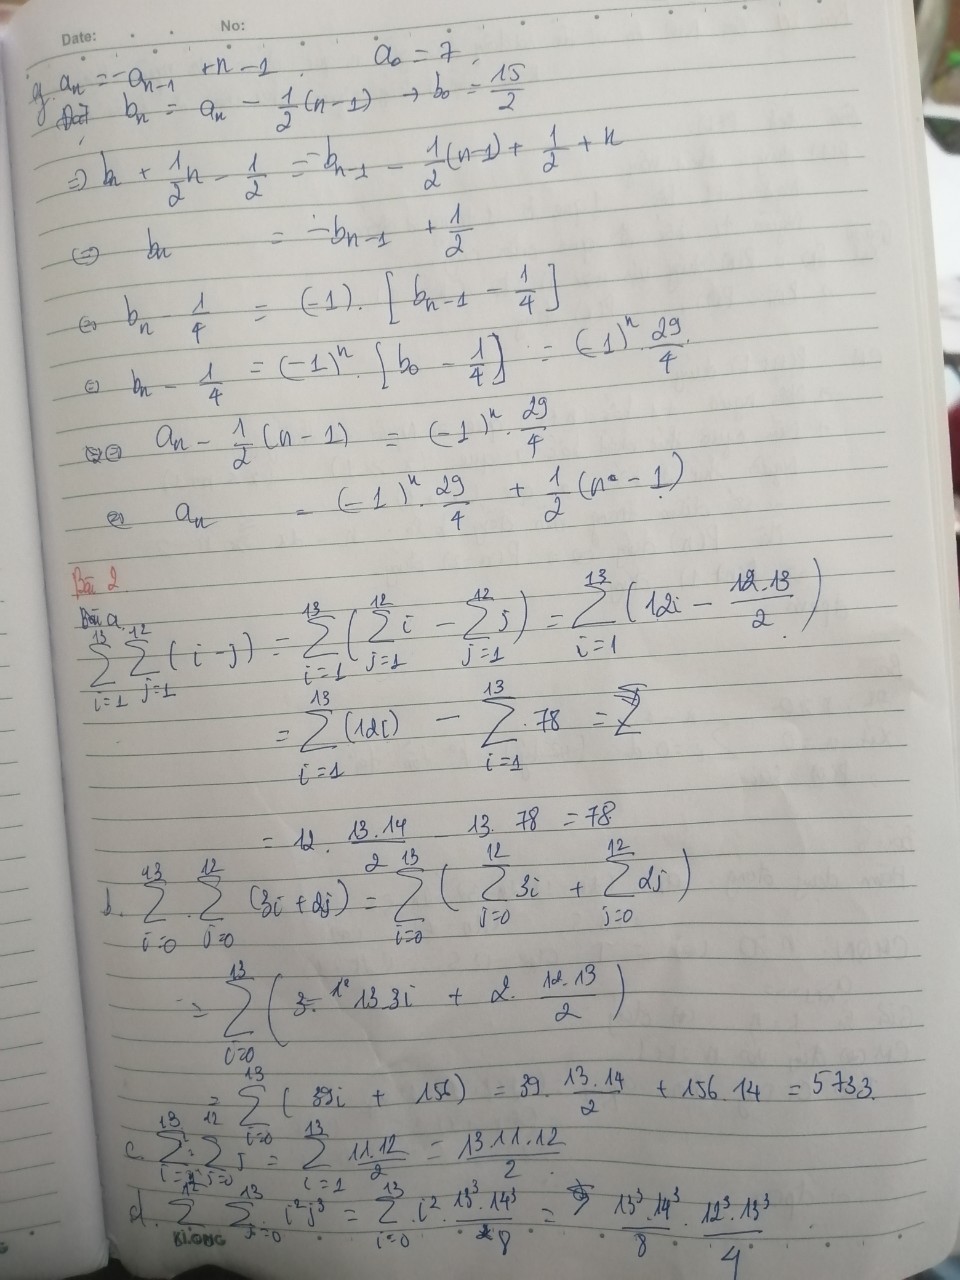 Date: No:
g. aₙ = -aₙ₋₁ + n - 1. a₀ = 7.
Đặt bₙ = aₙ - 1/2 (n-1) → b₀ = 15/2
⇒ bₙ + 1/2 n - 1/2 = -bₙ₋₁ - 1/2 (n-1) + 1/2 + n
⇔ bₙ = -bₙ₋₁ + 1/2
⇔ bₙ - 1/4 = (-1). [bₙ₋₁ - 1/4]
⇔ bₙ - 1/4 = (-1)ⁿ. [b₀ - 1/4] = (-1)ⁿ. 29/4.
⇔ aₙ - 1/2 (n - 1) = (-1)ⁿ. 29/4
⇔ aₙ = (-1)ⁿ. 29/4 + 1/2 (n - 1)
Bài 2
a.
∑_{i=1}^{13} ∑_{j=1}^{12} (i-j) = ∑_{i=1}^{13} (∑_{j=1}^{12} i - ∑_{j=1}^{12} j) = ∑_{i=1}^{13} (12i - 12.13/2)
= ∑_{i=1}^{13} (12i) - ∑_{i=1}^{13} .78 =
= 12. 13.14/2 - 13. 78 = 78
b. ∑_{i=0}^{13} . ∑_{j=0}^{12} (3i + 2j) = ∑_{i=0}^{13} (∑_{j=0}^{12} 3i + ∑_{j=0}^{12} 2j)
= ∑_{i=0}^{13} (13.3i + 2. 12.13/2)
= ∑_{i=0}^{13} (39i + 156) = 39. 13.14/2 + 156.14 = 5733.
c. ∑^{13} ∑_{j=0}^{12} j = ∑_{i=1}^{13} 11.12/2 = 13.11.12/2.
d. ∑^{12} ∑_{j=0}^{13} i²j³ = ∑_{i=0}^{13} .i². 13³.14³/8 = 13³.14³/8 . 12³.13³/4
KLONG